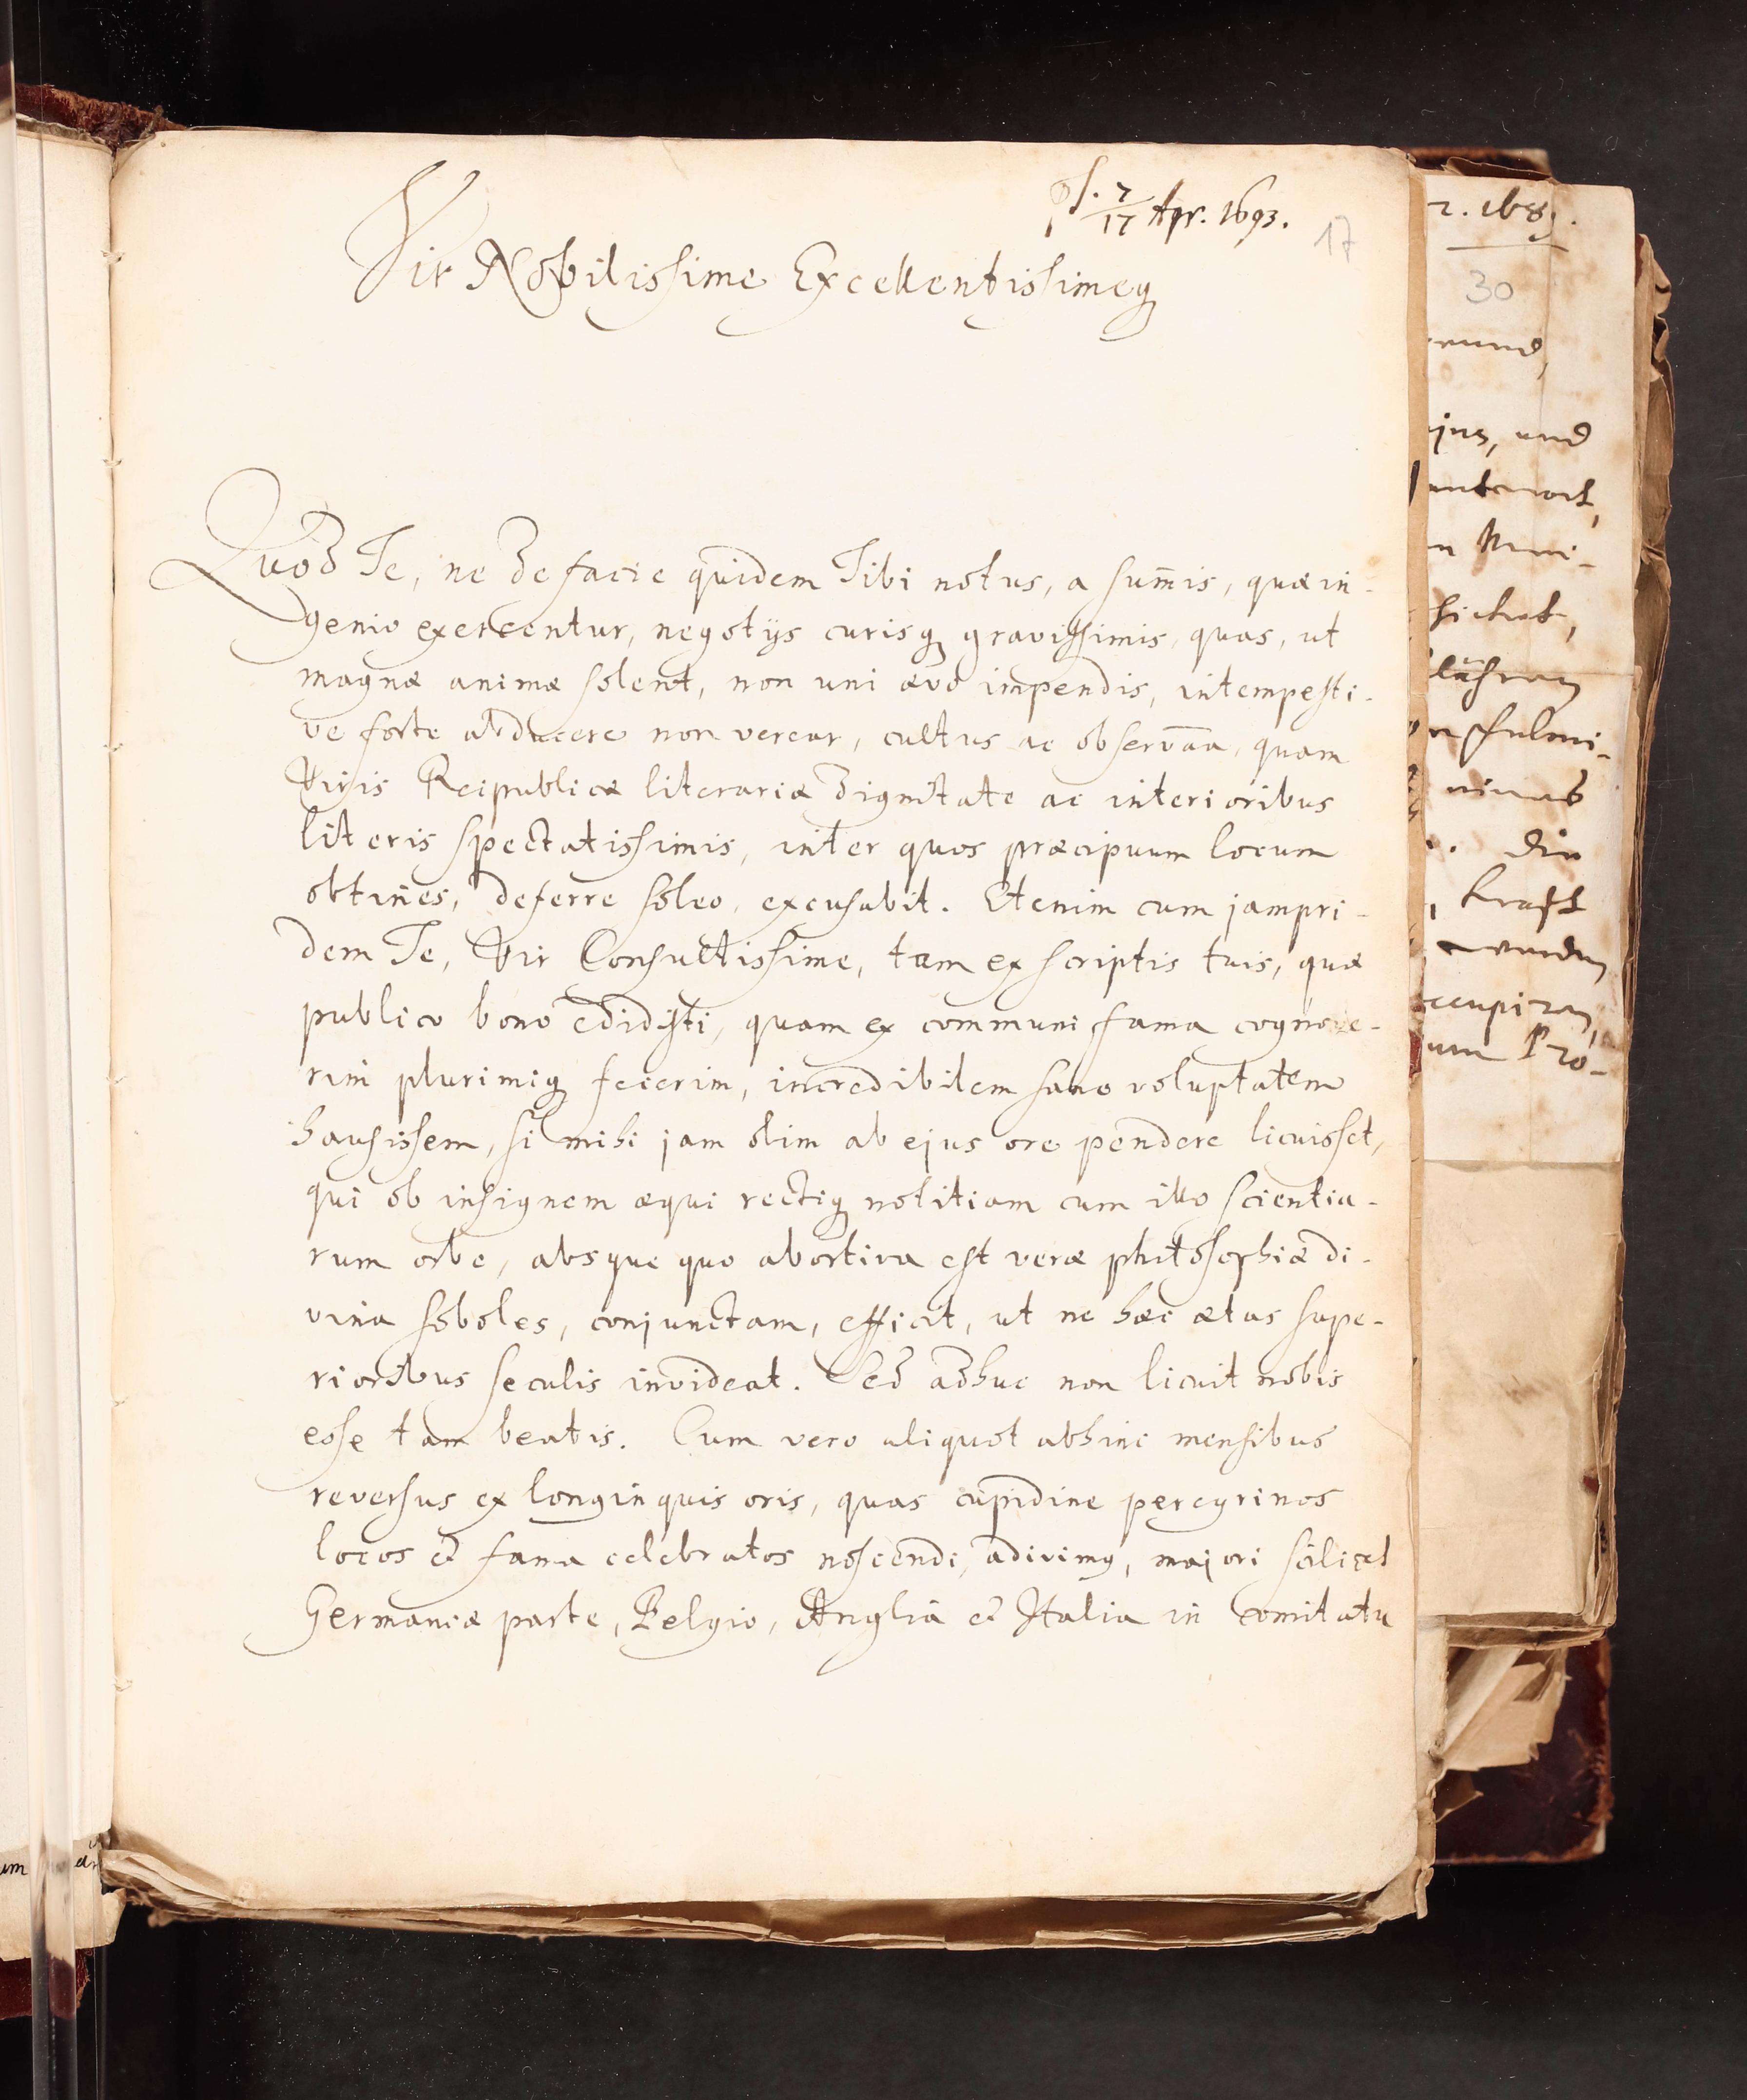 ps. 7/17 Apr. 1693.
17
Vir Nobilissime Excellentissimeq
Quod Te, ne de facie quidem Tibi notus, a sum̄is, quæ in-
genio exercentur, negotijs curisq gravissimis, quas, ut
magnæ animæ solent, non uni ævo impendis, intempesti-
ve forte abducere non verear, cultus ac observãa, quam
Viris Reipublicæ literariæ dignitate ac interioribus
literis spectatissimis, inter quos præcipuum locum
obtines, deferre soleo, excusabit. Etenim cum jampri-
dem Te, Vir Consultissime, tam ex scriptis tuis, quæ
publico bono edidisti, quam ex communi fama cognove-
rim plurimiq fecerim, incredibilem sane voluptatem
hausissem, si mihi jam olim ab ejus ore pendere licuisset,
qui ob insignem æqui rectiq notitiam cum illo scientia-
rum orbe, absque quo abortiva est veræ philosophiæ di-
vina soboles, conjunctam, efficit, ut ne hæc ætas supe-
rioribus seculis invideat. Sed adhuc non licuit nobis
esse tam beatis. Cum vero aliquot abhinc mensibus
reversus ex longinquis oris, quas cupidine peregrinos
locos et fama celebratos noscendi, adivimus, majori scilicet
Germaniæ parte, Belgio, Anglia et Italia in comitatu
30
und
Krafft